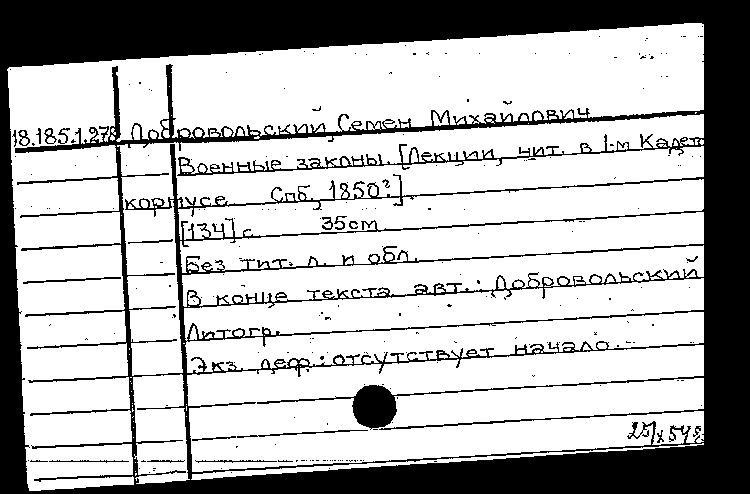 18.185.1.278 Добровольский, Семен Михайлович
Военные законы. [Лекции, чит. в 1-м Кадет
корпусе Спб, 1850?].
[134] с. 35см
Без тит. л. и обл.
В конце текста авт.: Добровольский
Литогр.
Экз деф.: отсутствует начало.
25/X 54г.